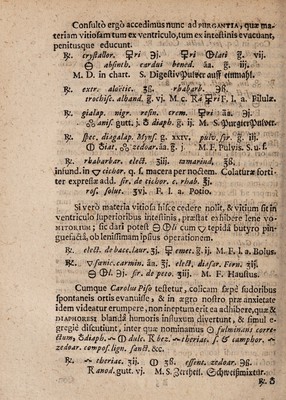 Consultò ergò accedimus nunc ad PURGANTIA, quæ ma-
teriam vitiosam tum ex ventriculo, tum ex intestinis evacuant,
penitusque educunt.
℞. crystallor. 🜿ri ʒj. 🜿ri ⦶lati g. vij.
absinth. cardui bened. āā. g. iij.
M. D. in chart. S. Digestiv-Pulver auff einmahl.
℞. extr. aloëtic. ℈j. rhabarb. ℈ß.
trochisc. alhand. g. vj. M. c. 🜿ri F. l. a. Pilulæ.
℞. gialap. nigr. resin. crem. 🜿ri āā. ℈j.
anis. gutt. j. diaph. g. ij. M. S. Purgier-Pulver.
℞. spec. diagalap. Myns. g. xxiv. pulv. sir. g. iij.
⦶iat. zedoar. āā. g. j. M F. Pulvis. S. u. s.
℞. rhabarbar. elect. ʒiij. tamarind. ʒß.
infund. in cichor. q. s. macera per noctem. Colaturæ forti-
ter expressæ add. sir. de cichor. c. rhab. ℥j.
ros. solut. ʒvj. F. l. a. Potio.
Si verò materia vitiosa hisce cedere nolit, & vitium sit in
ventriculo superioribus intestinis, præstat exhibere lene VO-
MITORIUM; sic dari potest ⦶li cum tepidâ butyro pin-
guefactâ, ob lenissimam ipsius operationem.
℞. elect. de bace. laur. ʒj. emet. g. iij. M. F. l. a. Bolus.
℞. fœnic. carmin. āā. ℥j. elect. diasar. Fern. ʒij.
⦶li ℈j. sir. de peto. ʒiij. M. F. Haustus.
Cumque Carolus Piso testetur, colicam sæpe sudoribus
spontaneis ortis evanuisse, & in ægro nostro præ anxietate
idem videatur erumpere, non ineptum erit ea adhibere, quæ &
DIAPHORESI blandâ humoris influxum divertunt, & simul e-
gregiè discutiunt, inter quæ nominamus fulminans corre-
ctum, diaph. ⦶ dulc. Rbez. theriac. s. & camphor.
zedoar. compos. lign. sanct. &c.
℞. theriac. ʒij. ʒß. essent. zedoar. ℈ß.
R anod. gutt. vj. M. S. Zertheil. Schweißmixtur.
℞.